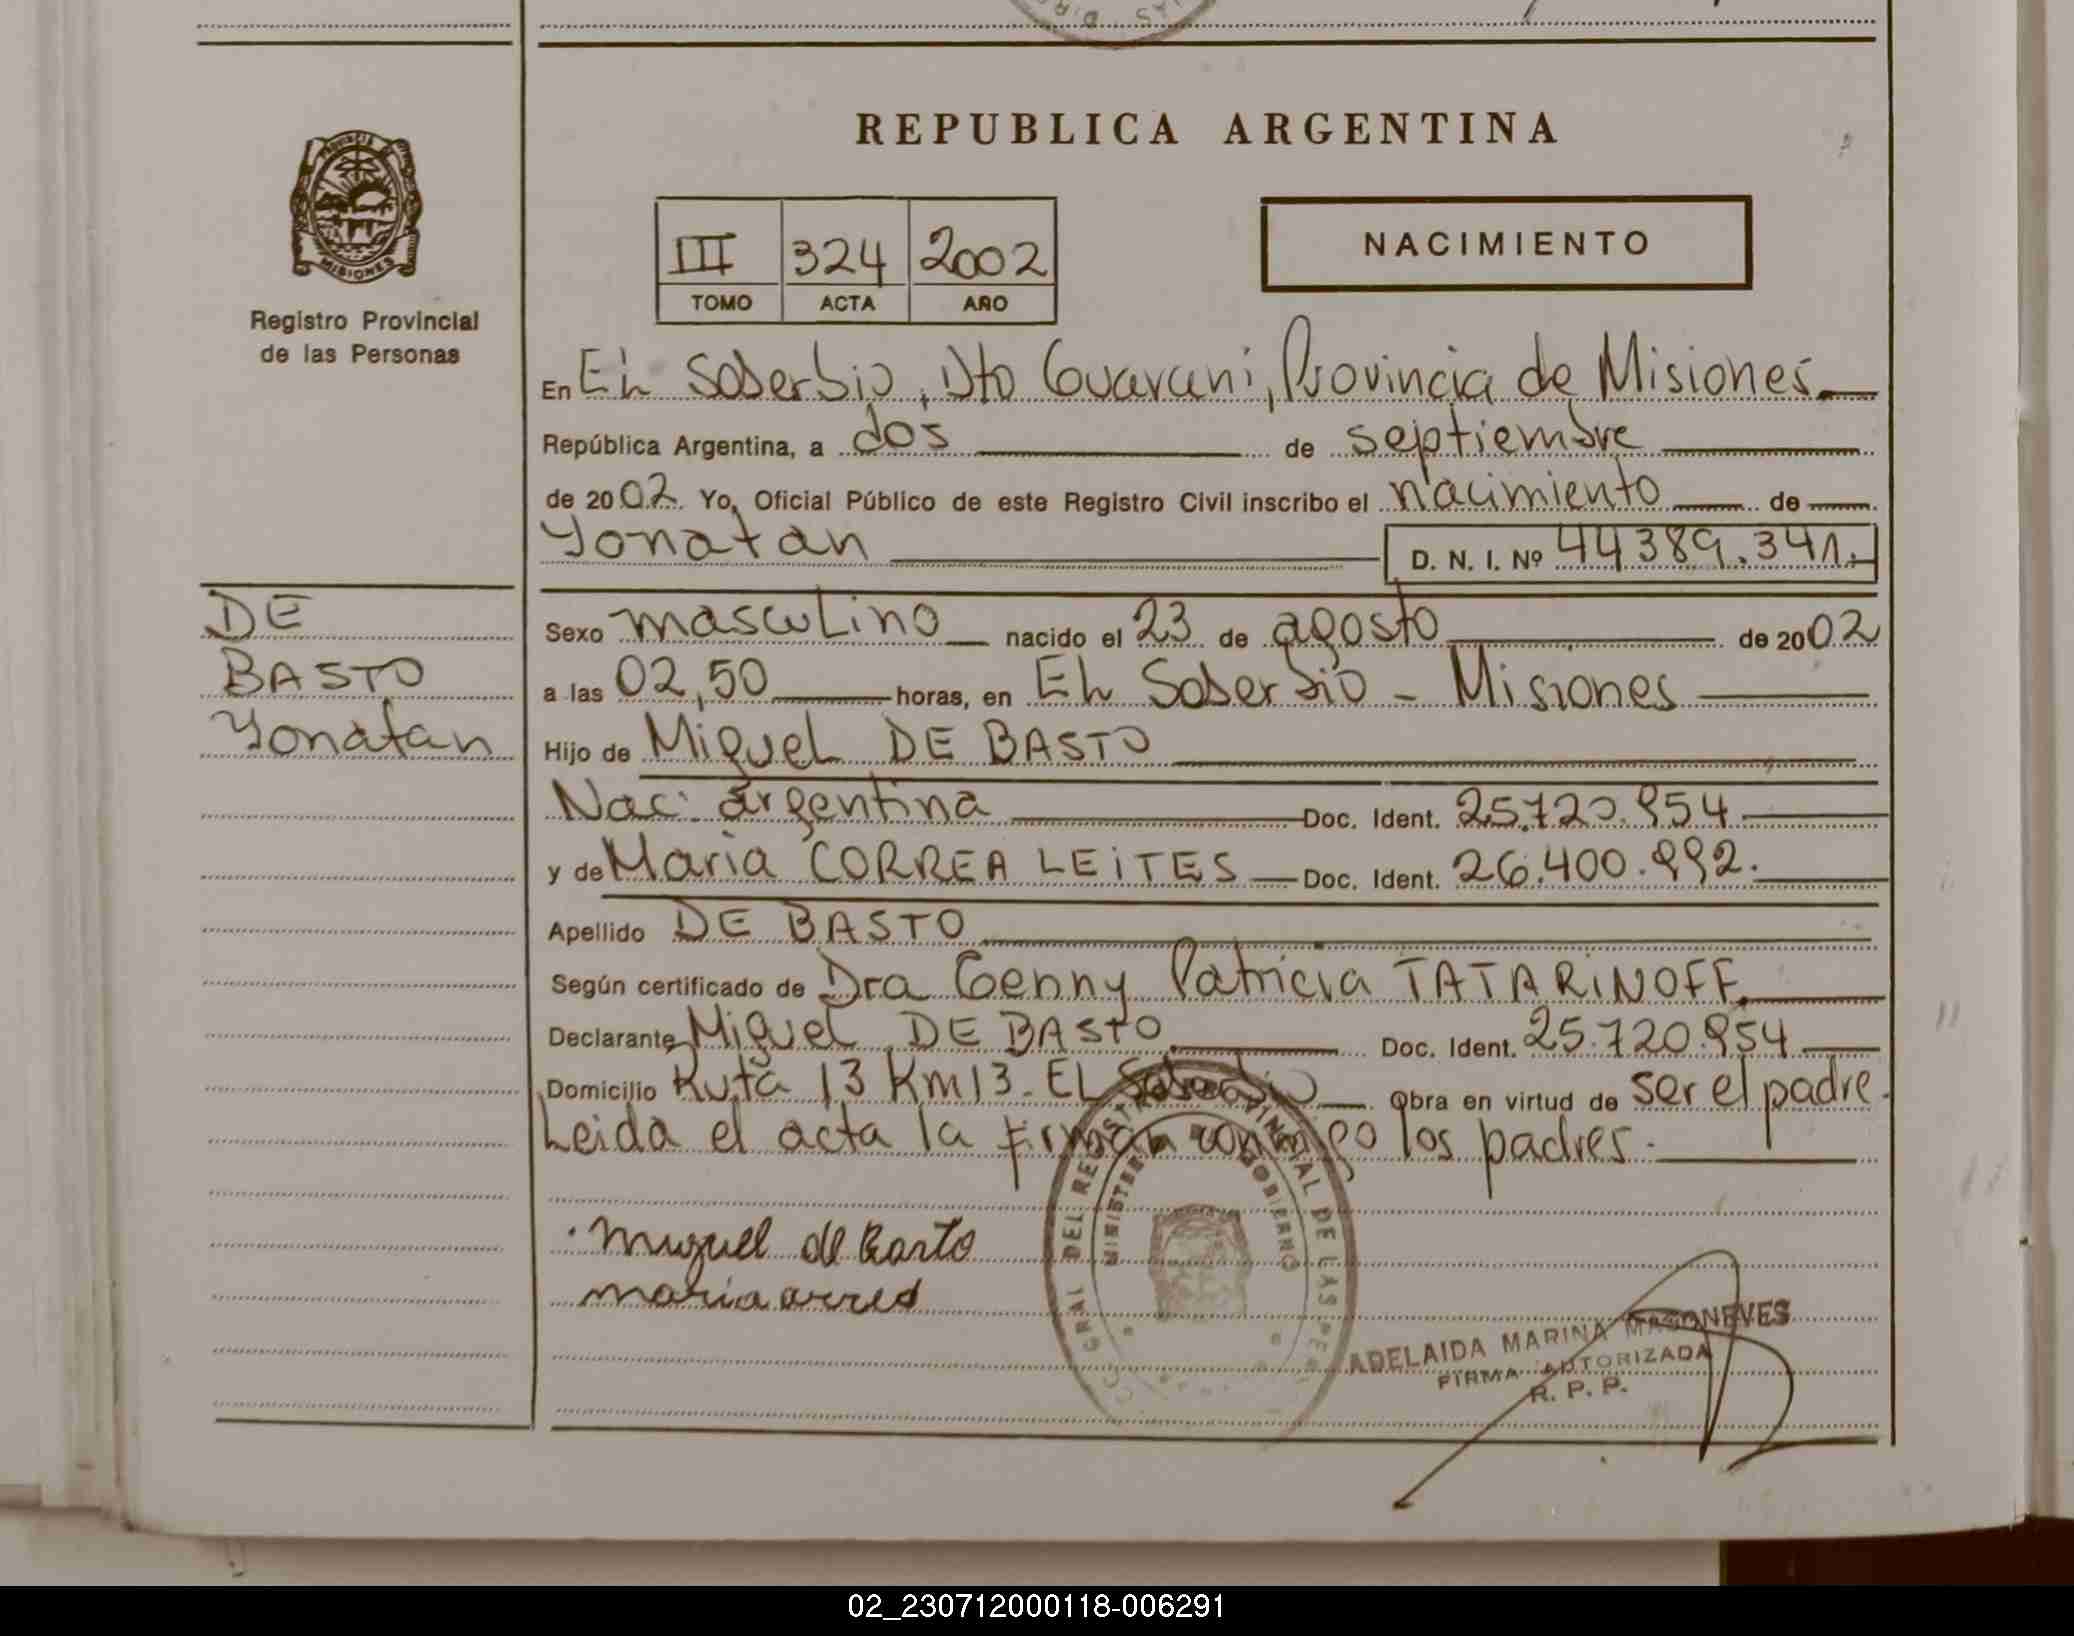 REPUBLICA ARGENTINA
PROVINCIA DE
MISIONES
Registro Provincial
de las Personas
III 324 2002
TOMO ACTA AÑO
NACIMIENTO
En El Soberbio, Dto Guaraní, Provincia de Misiones
República Argentina, a dos de septiembre
de 2002 Yo, Oficial Público de este Registro Civil inscribo el nacimiento de
Yonatan D. N. I. Nº 44389.341.
DE
BASTO
Yonatan
Sexo masculino nacido el 23 de agosto de 2002
a las 02,50 horas, en El Soberbio - Misiones
Hijo de Miguel DE BASTO
Nac: argentina Doc. Ident. 25.720.954
y de Maria CORREA LEiTES Doc. Ident. 26.400.992.
Apellido DE BASTO
Según certificado de Dra Genny Patricia TATARiNOFF.
Declarante Miguel DE BASTO Doc. Ident. 25.720.954
Domicilio Ruta 13 Km 13 - EL Soberbio Obra en virtud de ser el padre.
Leida el acta la firman conmigo los padres.
Miguel de Basto
maria
MINISTERIO GOBIERNO
ADELAIDA MARINA
FIRMA AUTORIZADA
R. P. P.
02_230712000118-006291